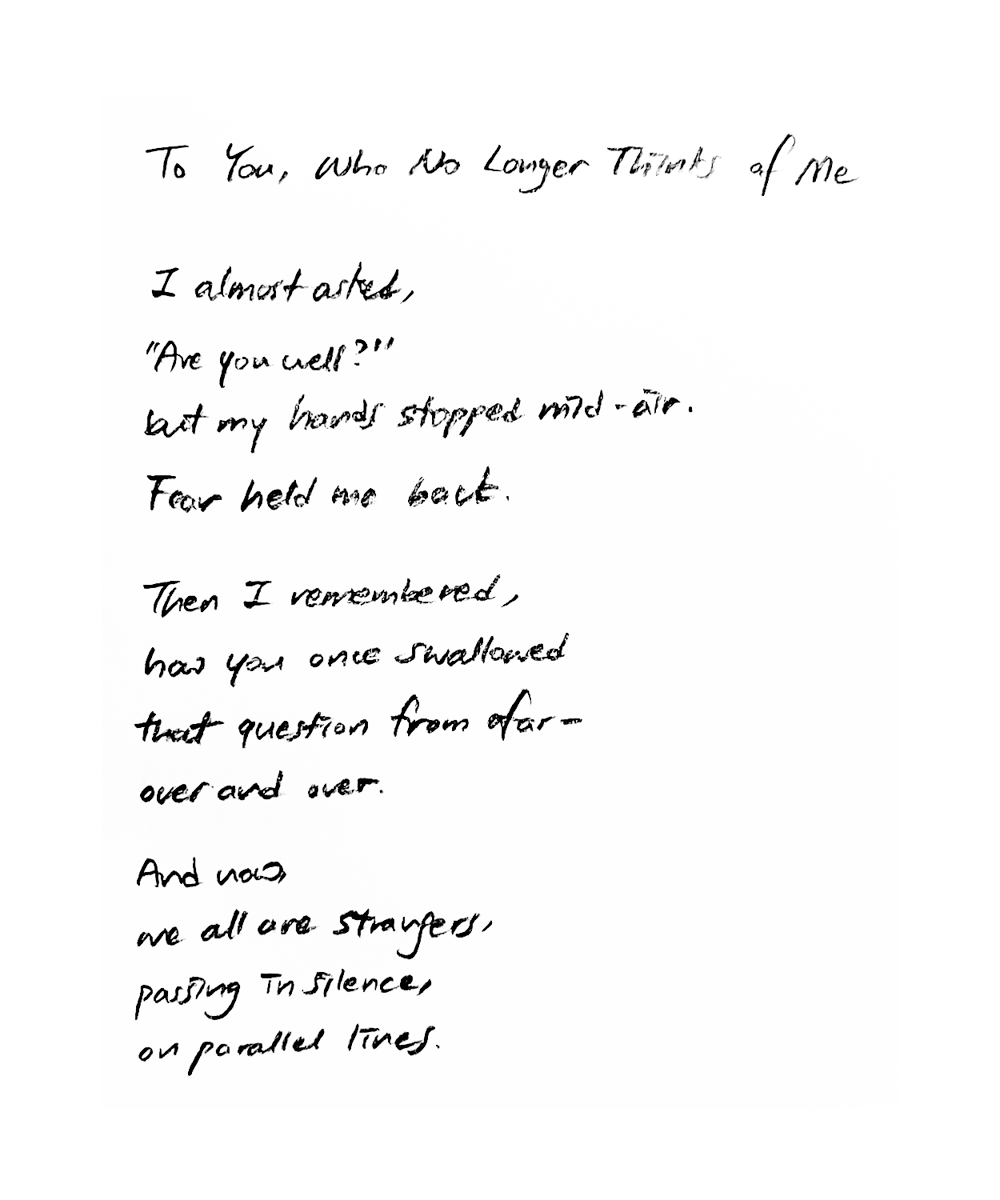 To You, Who No Longer Thinks of Me
I almost asked,
"Are you well?"
but my hands stopped mid-air.
Fear held me back.
Then I remembered,
how you once swallowed
that question from afar-
over and over.
And now,
we all are strangers,
passing in silence,
on parallel lines.